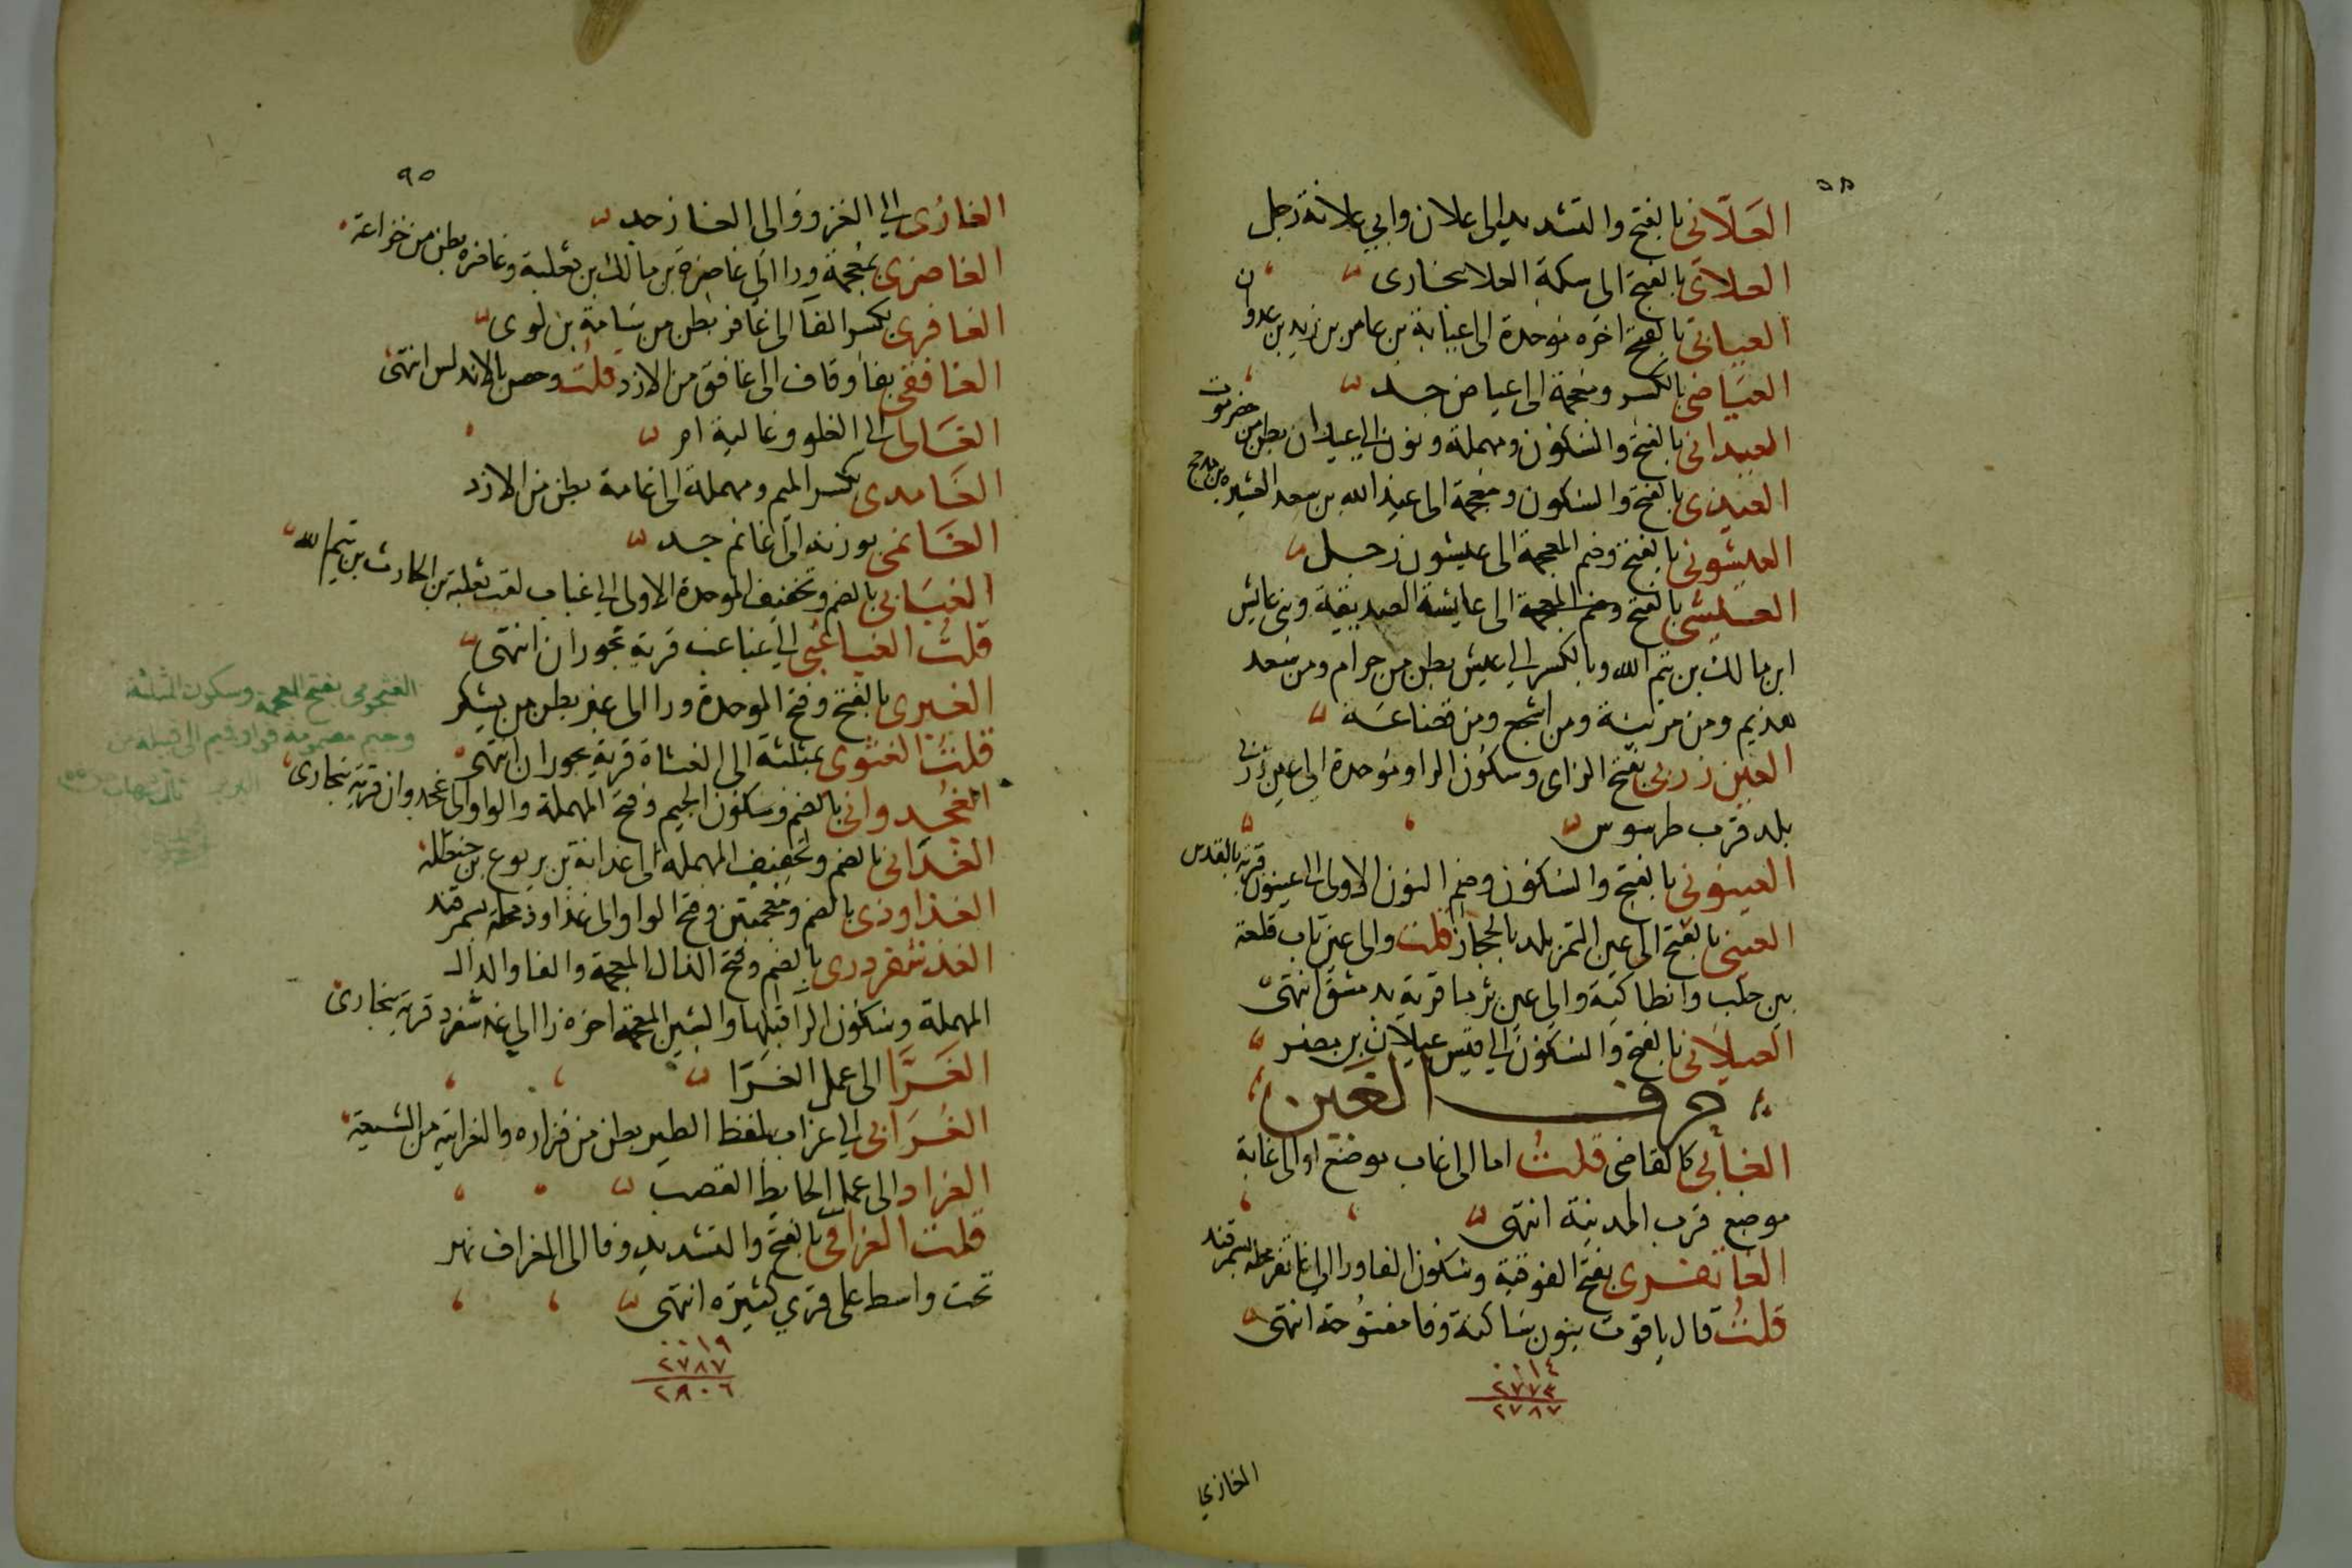 العَلّاني بالفتح والتشديد الى علان وابي علانة رجل
العلاي بالفتح الى سكة العلا ببخارى
العيابي بالفتح اخره موحدة الى عيابة بن عامر بن زيد بن عدوان
العيَاضي بالكسر ومعجمة الى عياض جد
العيداني بالفتح والسكون ومهملة ونون الى عيدان بطن من حضرموت
العيذي بالفتح والسكون ومعجمة الى عيذ الله بن سعد العشيره من مذحج
العيشوني بالفتح وضم المعجمة الى عيشون رجل
العيشي بالفتح وضم المعجمة الى عايشة الصديقية وبني عايش
ابن مالك بن تيم الله وبالكسر الى عيش بطن من حرام ومن سعد
هذيم ومن مزينة ومن اشجع ومن قضاعة
العين زربي بفتح الزاى وسكون الرا وموحدة الى عين زربى
بلد قرب طرسوس
العينوني بالفتح والسكون وضم النون الاولى الى عينون قرية بالقدس
العيني بالفتح الى عين التمر بلد بالحجاز قلت والى عين تاب قلعة
بين حلب وانطاكية والى عين ثرما قرية بدمشق انتهى
العيلاني بالفتح والسكون الى قيس عيلان بن مضر
حرف الغين
الغابي كالقاضي قلت اما الى غاب موضع او الى غابة
موضع قرب المدينة انتهى
الغاتفري بفتح الفوقية وسكون الفا ورا الى غاتفر محلة بسمرقند
قلت قال ياقوت بنون ساكنة وفا مفتوحة انتهى
٠٠١٤
٢٧٧٣
٢٧٨٧
الغازي
٩٥
الغازى الى الغزو والى الغاز جد
الغاضرى بمعجمة ورا الى غاضرة بن مالك بن ثعلبة وغاضره بطن من خزاعة
الغافرى بكسر الفا الى غافر بطن من سَامة بن لوى
الغافقي بفا وقاف الى غافق من الازد قلت وحصن بالاندلس انتهى
الغَالى الى الغلو وغالية ام
الغَامدى بكسر الميم ومهملة الى غامد بطن من الازد
الغَانمي بوزنه الى غانم جد
الغبَابي بالضم وتخفيف الموحدة الاولى الى غباب لقب ثعلبة بن الحارث بن تيم الله
قلت الغباغبي الى غباغب قرية بحوران انتهى
الغبرى بالفتح وفتح الموحدة ورا الى غبر بطن من يشكر
قلت الغثوى بمثلثة الى الغثاة قرية بحوران انتهى
الغجدواني بالضم وسكون الجيم وفتح المهملة والواو الى غجدوان قرية ببخارى
الغُدَاني بالضم وتخفيف المهملة الى غدانة بن يربوع بن حنظلة
الغذاوذى بالضم ومعجمتين وفتح الواو الى غذاوذ محلة بسمرقند
الغذشفردرى بالضم وفتح الذال المعجمة والفا والدال
المهملة وسكون الرا قبلها والشين المعجمة اخره را الى غذشفردر قرية ببخارى
الغَرَّا الى عمل الغرّا
الغُرَابي الى غراب بلفظ الطير بطن من فزاره والغرابية من الشيعة
الغراد الى عمل الحايط القصب
قلت الغرافي بالفتح والتشديد وفا الى الغراف نهر
تحت واسط على قري كثيره انتهى
٠٠١٩
٢٧٨٧
٢٨٠٦
الغثجومي بفتح المعجمة وسكون المثلثة
وجيم مضمومة فواو فميم الى قبيلة من
البربر